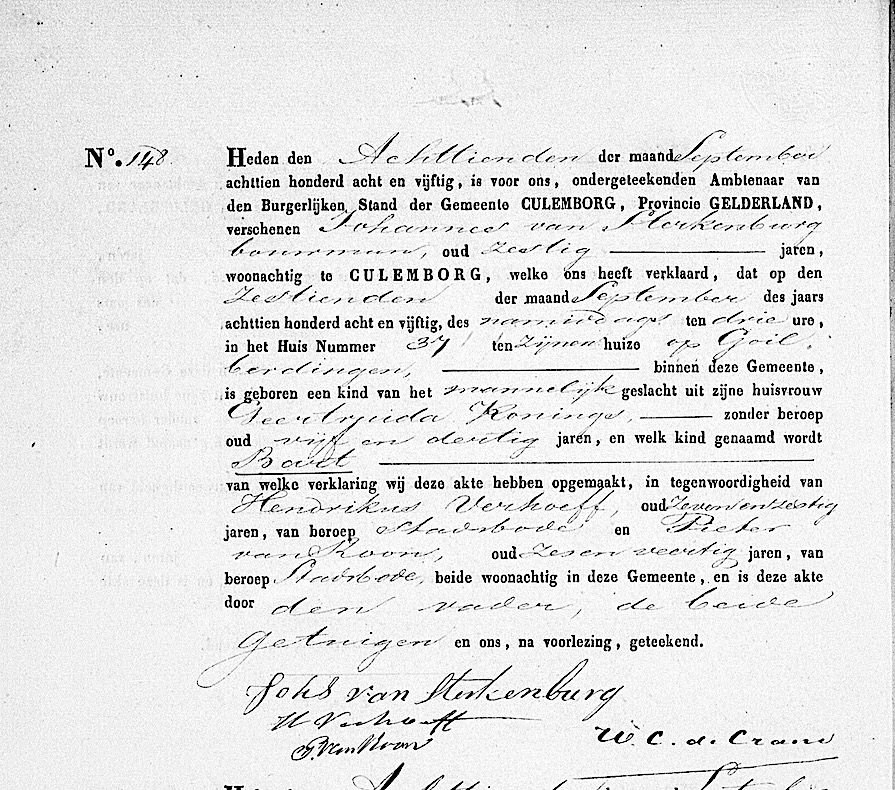 N°. 148 Heden den Achttienden der maand September
achttien honderd acht en vijftig, is voor ons, ondergeteekenden Ambtenaar van
den Burgerlijken Stand der Gemeente CULEMBORG, Provincie GELDERLAND,
verschenen Johannes van Sterkenburg
bouwman, oud zestig jaren,
woonachtig te CULEMBORG, welke ons heeft verklaard, dat op den
Zestienden der maand September des jaars
achttien honderd acht en vijftig, des namiddags ten drie ure,
in het Huis Nummer 37 ten zijnen huize op Goil-
berdingen, binnen deze Gemeente,
is geboren een kind van het mannelijk geslacht uit zijne huisvrouw
Geertruida Konings, zonder beroep
oud vijf en dertig jaren, en welk kind genaamd wordt
Bart
van welke verklaring wij deze akte hebben opgemaakt, in tegenwoordigheid van
Hendrikus Verhoeff, oud zevenenzestig
jaren, van beroep Stadsbode en Pieter
van Koon, oud zesenveertig jaren, van
beroep Stadsbode, beide woonachtig in deze Gemeente, en is deze akte
door den vader, de beide
Getuigen en ons, na voorlezing, geteekend.
Johs van Sterkenburg
H Verhoeff
P. van Koon W. C. de Crane